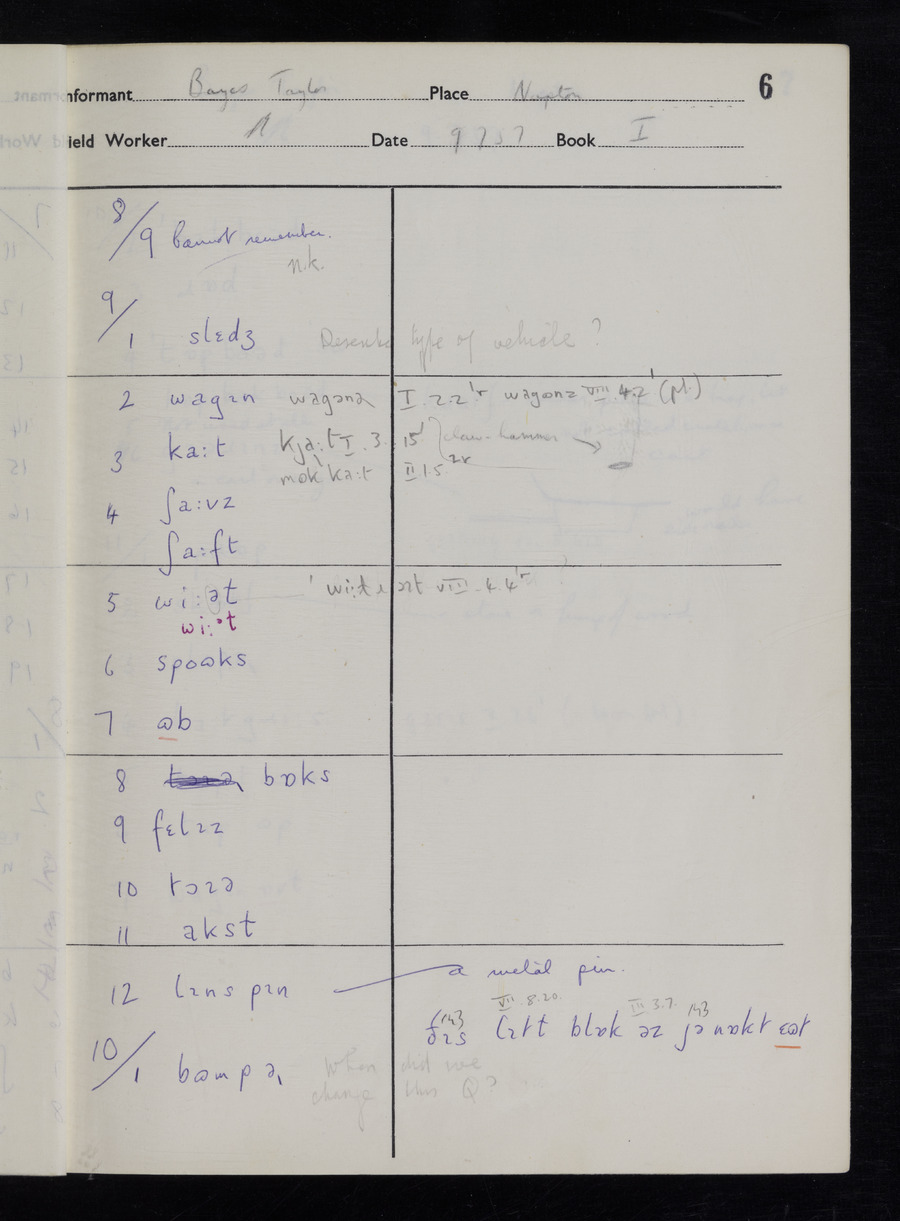 Informant Bayes Taylor Place Napton 6
Field Worker Date 9 7 57 Book I
8/9 Cannot remember.
n.k.
9/1 slɛdʒ Describe type of vehicle?
2 wagɪn wagənə I.2.2'r wagənz VIII.4.2' (pl.)
3 ka:t kja:t I.3.15 claw-hammer
mok ka:t II 1.5 2r
4 ʃa:vz
ʃa:ft
5 wi:ət VIII.4.4'r
wi:ət
6 spɷks
7 ɷb
8 bɒks
9 fɛlɪz
10 tɔɪə
11 akst
12 lɪns pɪn a metal pin.
VII.8.20. III.3.7.
ðɪs lɪtt blɒk əz jə nɒkt ɷt
10/1 bɷmpə When did we
change this Q?